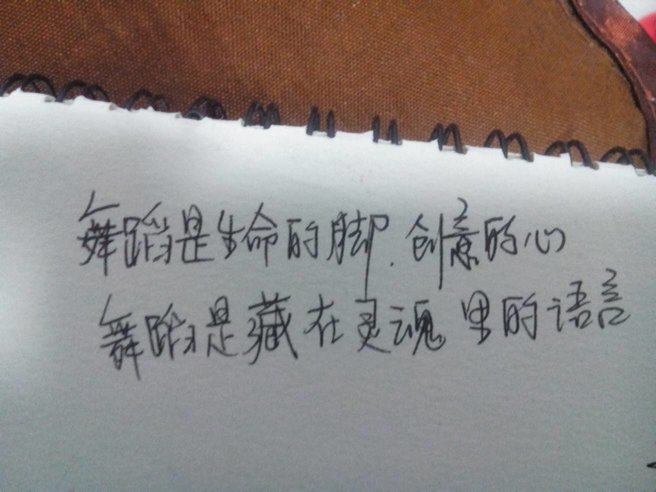 舞蹈是生命的脚.创意的心
舞蹈是藏在灵魂里的语言